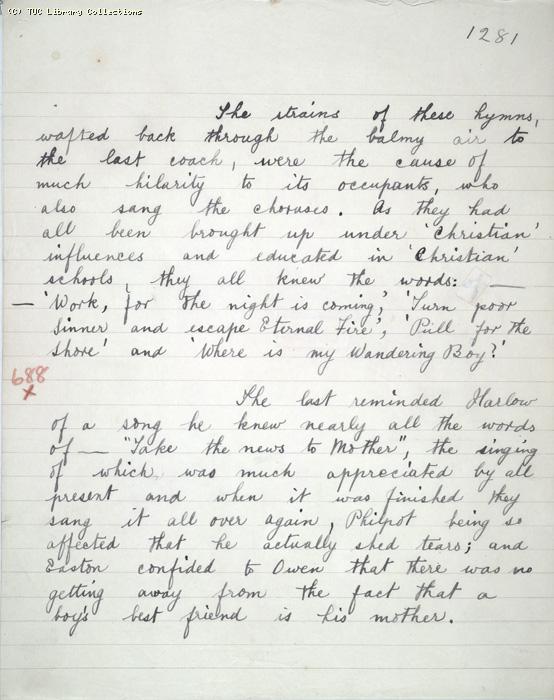 (C) TUC Library Collections
1281
The strains of these hymns,
wafted back through the balmy air to
the last coach, were the cause of
much hilarity to its occupants, who
also sang the choruses. As they had
all been brought up under 'Christian'
influences and educated in 'Christian'
schools, they all knew the words: —
— 'Work, for the night is coming', 'Turn poor
Sinner and escape Eternal Fire', 'Pull for the
Shore' and 'Where is my Wandering Boy?'
688
x
The last reminded Harlow
of a song he knew nearly all the words
of — "Take the news to Mother", the singing
of which was much appreciated by all
present and when it was finished they
sang it all over again, Philpot being so
affected that he actually shed tears; and
Easton confided to Owen that there was no
getting away from the fact that a
boy's best friend is his mother.